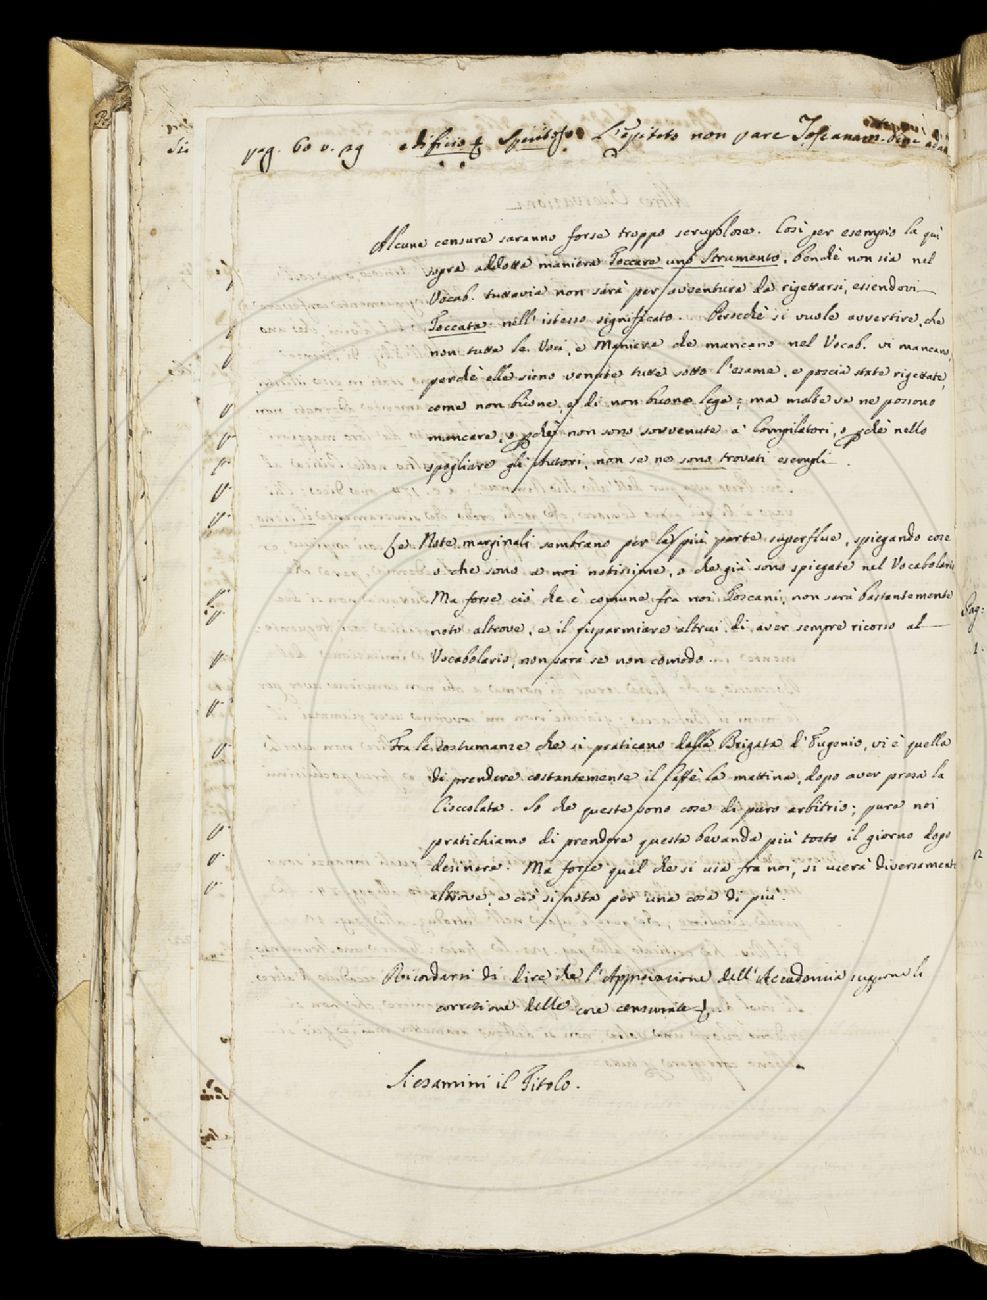 pag. 60 v. 29 edificio spiritoso. L'epiteto non pare Toscanam.
Alcune censure saranno forse troppo scrupolose. Così per esempio la quì
sopra addotta maniera Toccare uno Strumento, benchè non sia nel
Vocab. tuttavia non sarà per avventura da rigettarsi, essendovi
Toccata nell'istesso significato. Perochè si vuole avvertire, che
non tutte le Voci, e Maniere che mancano nel Vocab. vi mancano,
perchè elle sieno venute tutte sotto l'esame, e poscia state rigettate,
come non buone, e di non buona lega; ma molte ve ne possono
mancare, o pchè non sono sovvenute a' Compilatori, o pchè nello
spogliare gli Autori, non se ne sono trovati esempli.
Le Note marginali sembrano per la più parte superflue, spiegando cose
o che sono a noi notissime, o che già sono spiegate nel Vocabolario
Ma forse ciò che è comune fra noi Toscani, non sarà bastantemente
noto altrove, e il risparmiare altrui di aver sempre ricorso al
Vocabolario, non sarà se non comodo.
Fra le costumanze che si praticano dalla Brigata d'Eugenio, vi è quella
di prendere costantemente il Caffè la mattina, dopo aver presa la
Cioccolata. So che queste sono cose di puro arbitrio; pure noi
pratichiamo di prendere questa bevanda più tosto il giorno dopo
desinare. Ma forse quel che si usa fra noi, si userà diversamente
altrove, e ciò si nota per una cosa di più.
Ricordarsi di dire che l'Approvazione dell'Accademia suppone la
correzione delle cose censurate.
Si esamini il Titolo.
Pag:
1.
12